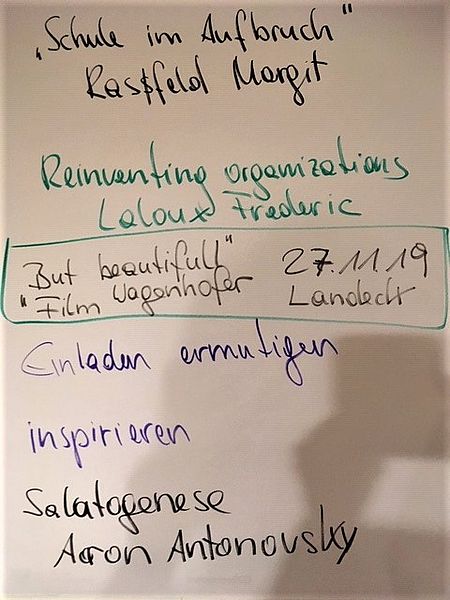 „Schule im Aufbruch"
Rasßfeld Margit
Reinventing organizations
Laloux Frederic
But beautifull" 27.11.19
"Film Wagenhofer Landeck
Einladen ermutigen
inspirieren
Salatogenese
Aaron Antonovsky